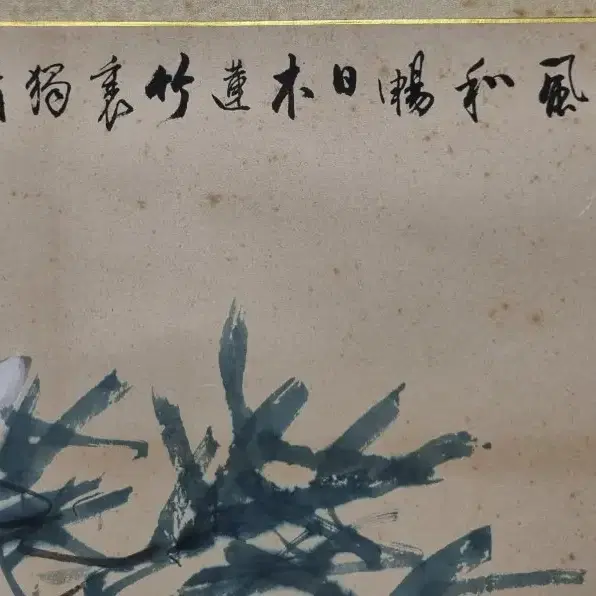 風和暢日木蓮竹裏獨